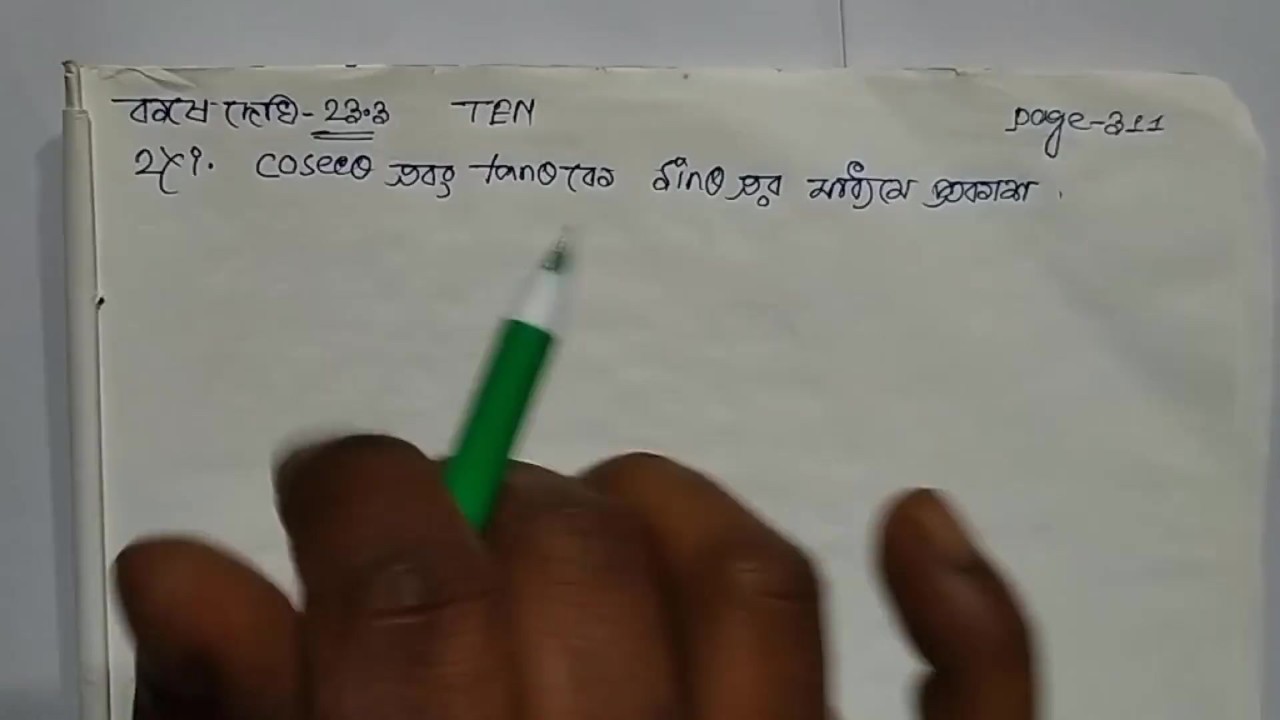 কষে দেখি- 23.3 TEN page-311
2)(i). cosecθ এবং tanθ কে sinθ এর মাধ্যমে প্রকাশ.